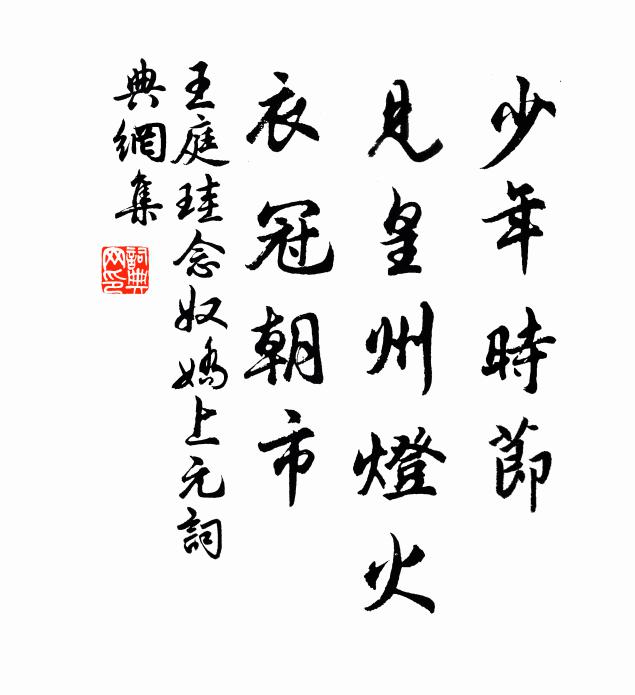 少年時節
見皇州燈火
衣冠朝市
王庭珪念奴嬌上元詞
典網集
詞典網印